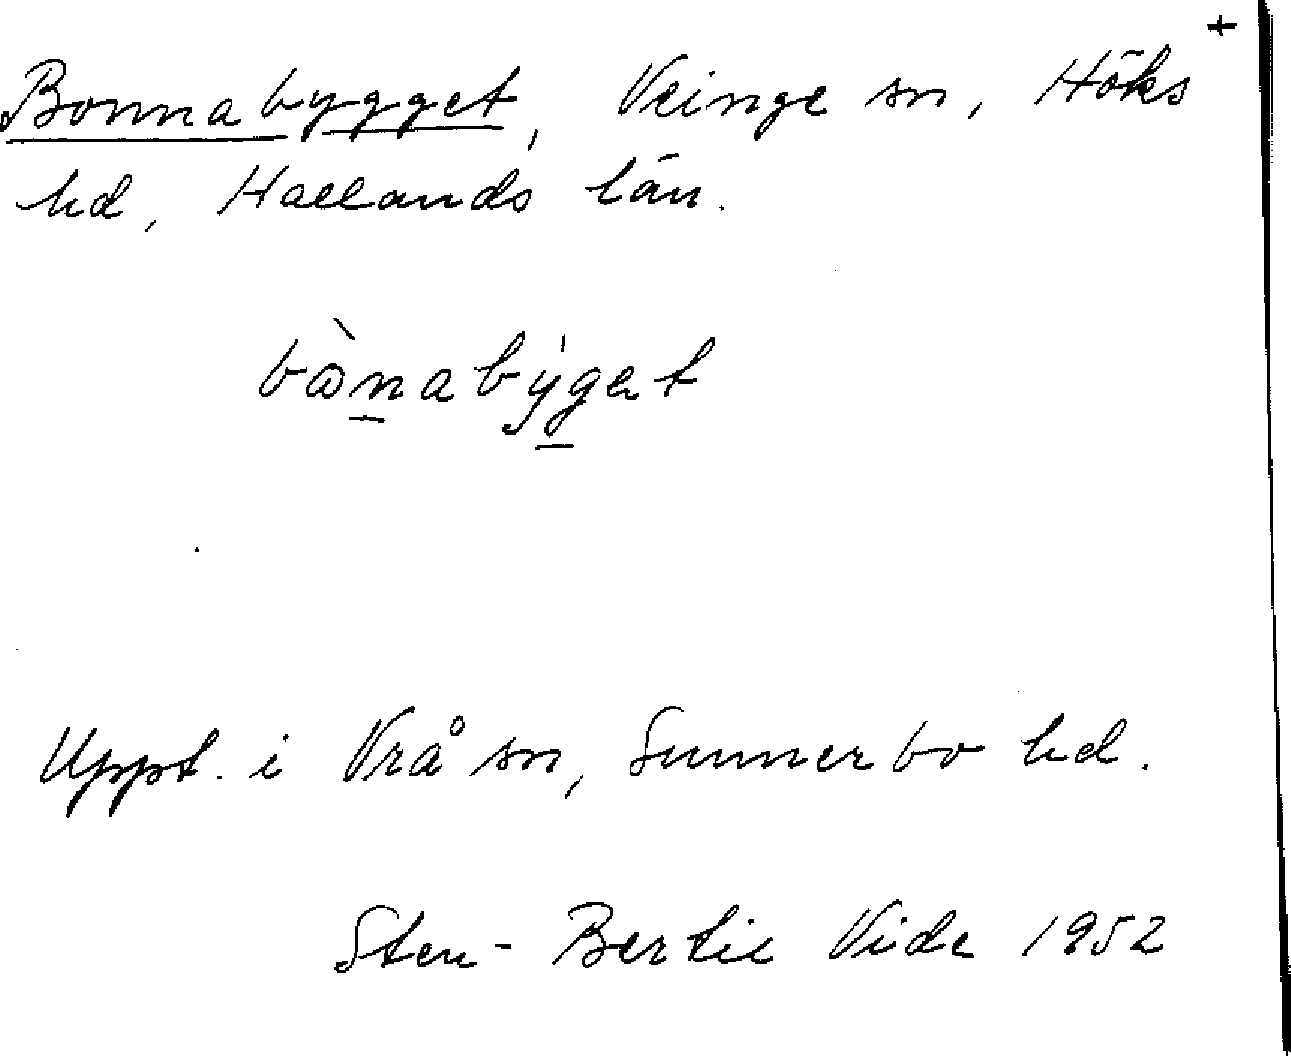 +
Bonnabygget, Veinge sn, Höks
hd, Hallands län.
bὼn̲abýg̲et
Uppt. i Vrå sn, Sunnerbo hd.
Sten-Bertil Vide 1952